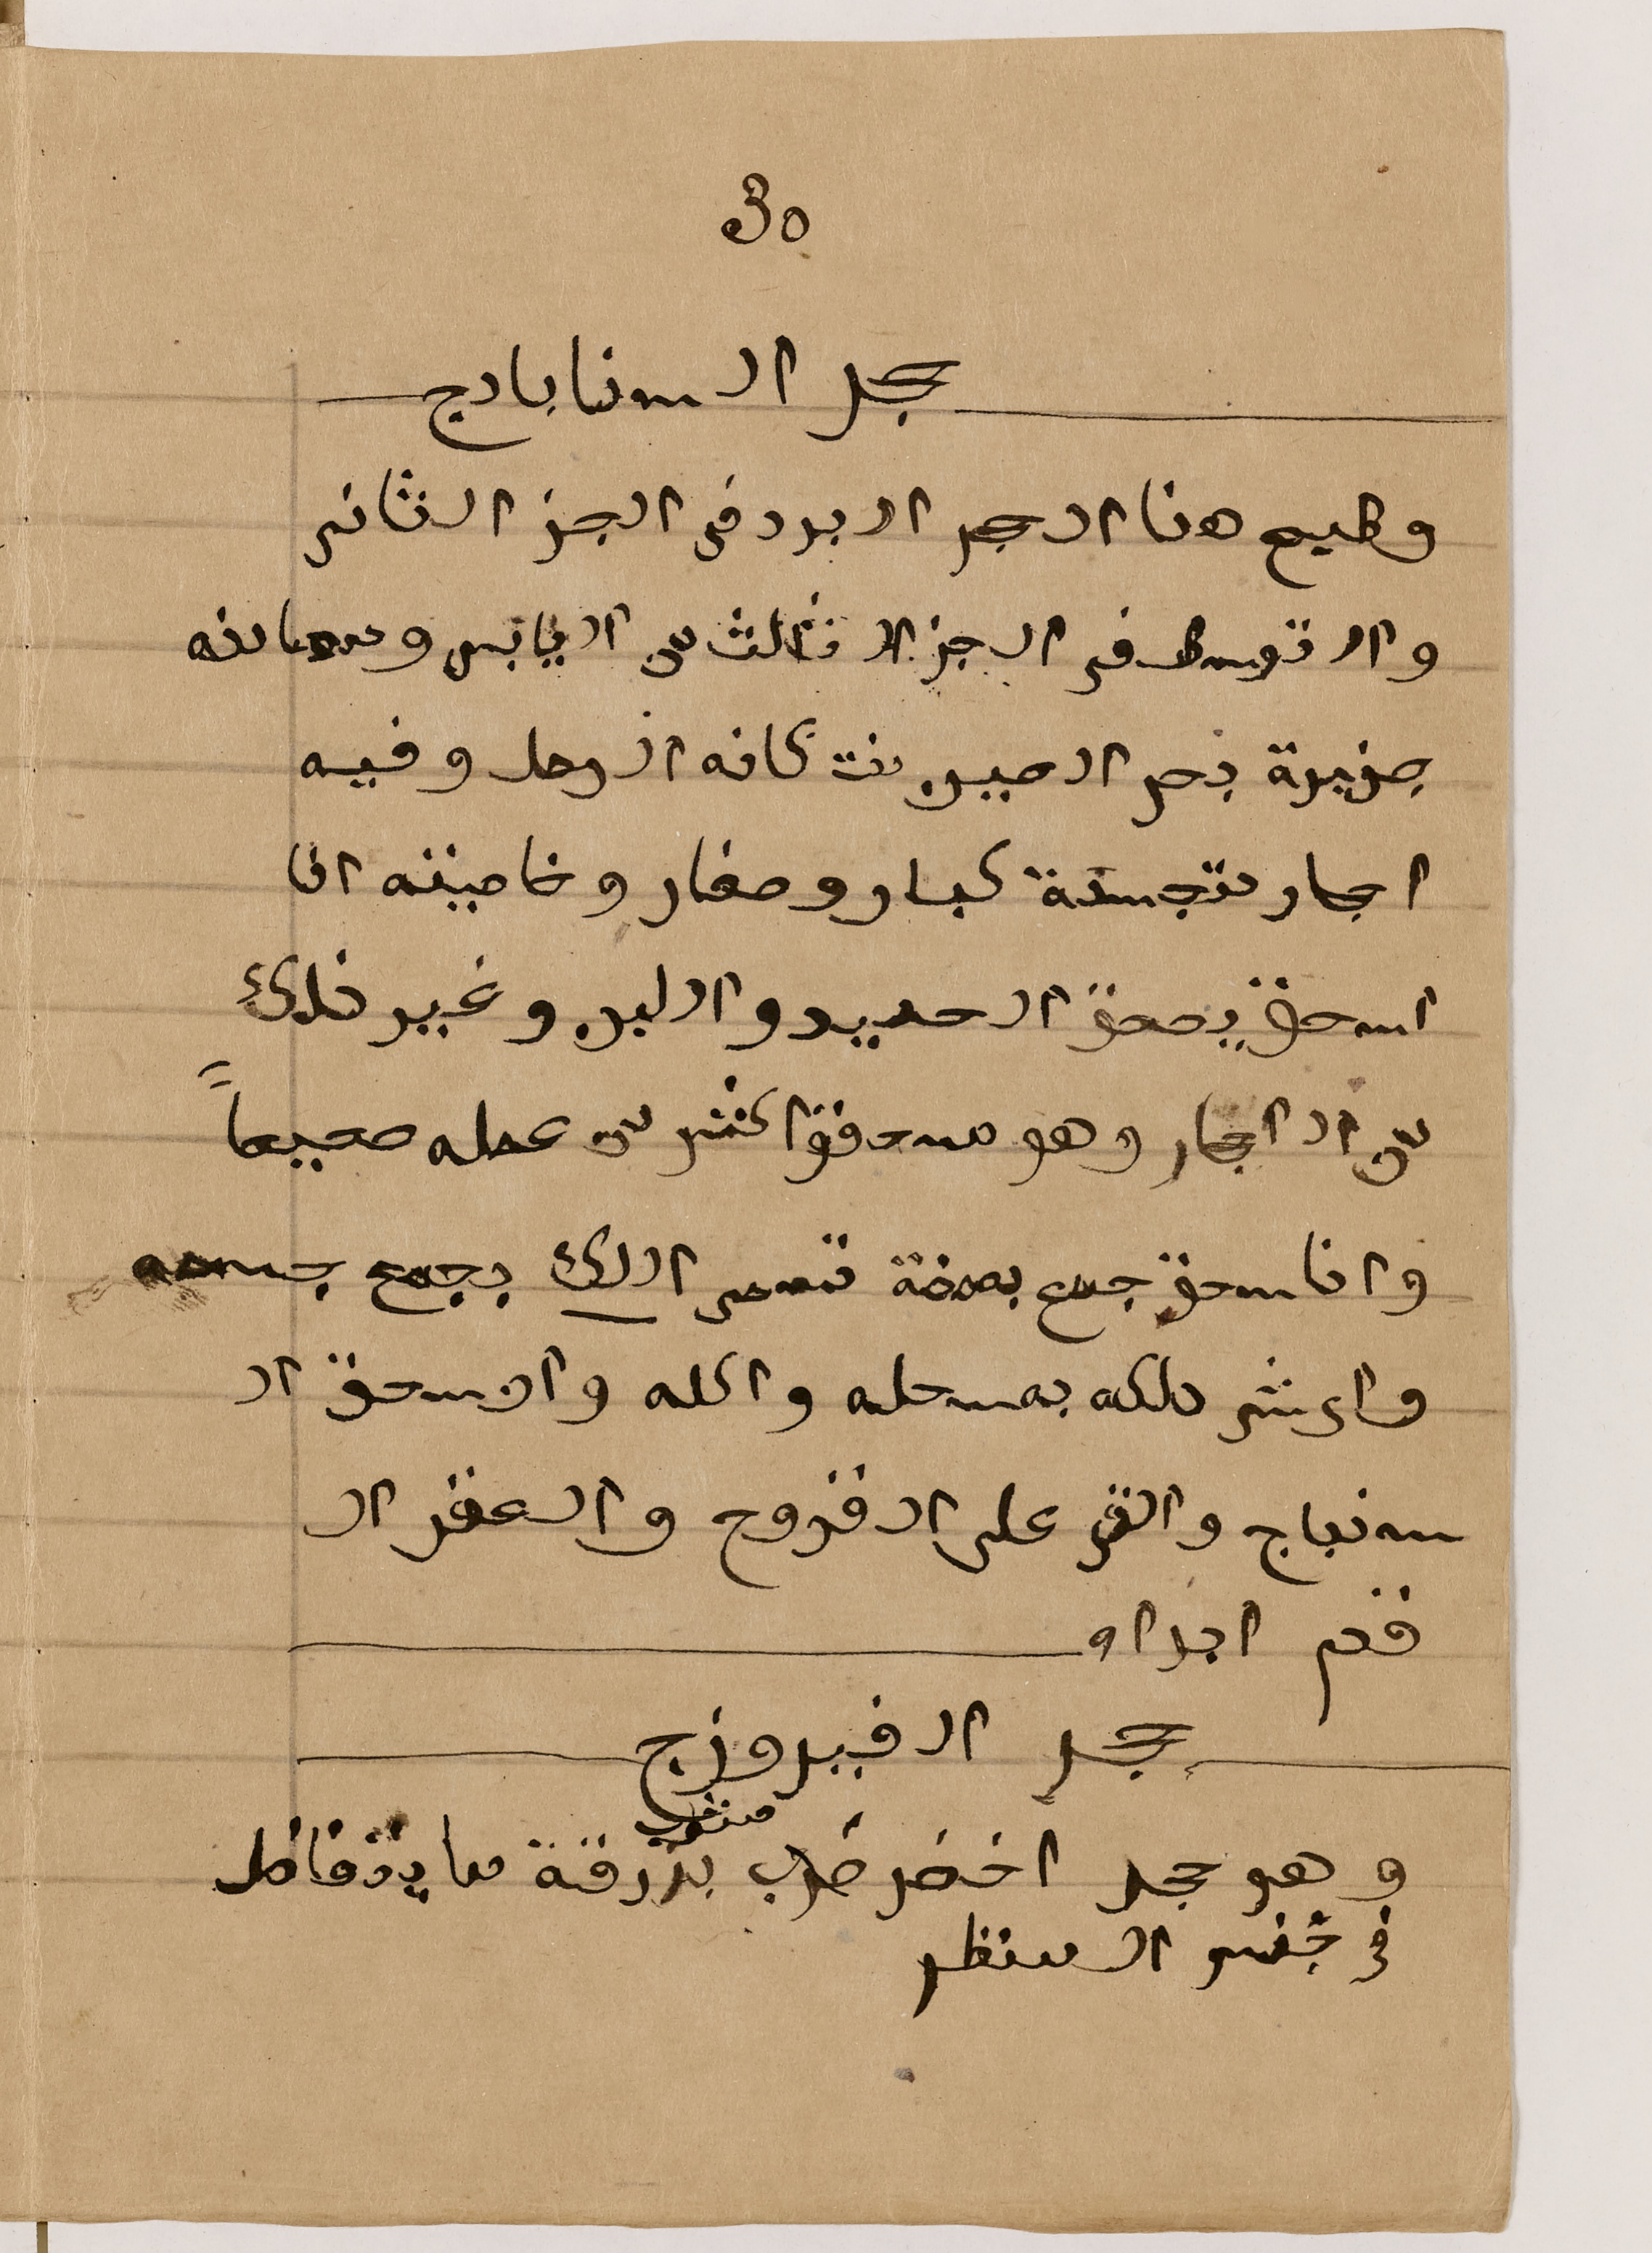 30
حجر السنابادج
وطبع هذا الحجر البرد في الجز الثاني
والتوسط في الجز الثالث من اليابس ومعدنه
جزيرة بحر الصين منت كانه الرمل وفيه
احجار متجسدة كبار وصغار وخاصيته اذا
اسحق يسحق الحديد والبن وغير ذلك
من الاحجار وهو مسحوق اكثر من عمله صحيحاً
واذا سحق جمع بصمغة تسمى اللك بجمع جسمه
واي شي دلكه به سحله واكله وان سحق ال
سنباج والقي على القروح والعقر ال
قدم ابراه
حجر الفيروزج
وهو حجر اخضر ضرب مشرب بزرقة ما يتفاضل
في حسن المنظر